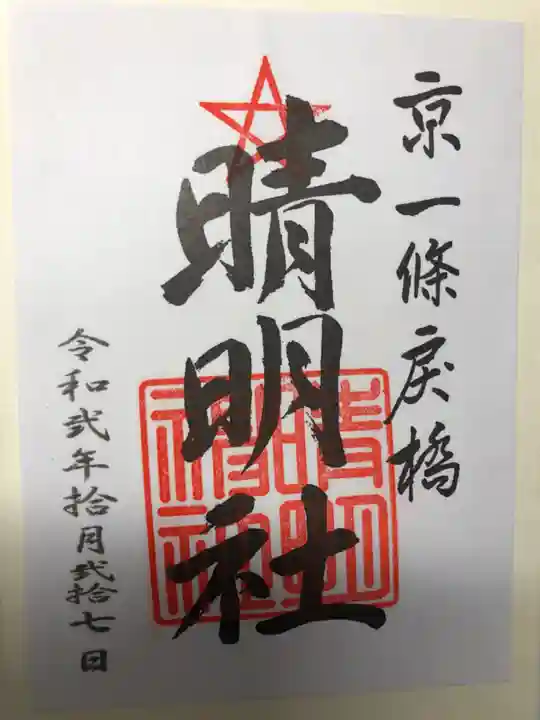 京一條戻橋
晴明社
晴明神社
令和弐年拾月弐拾七日